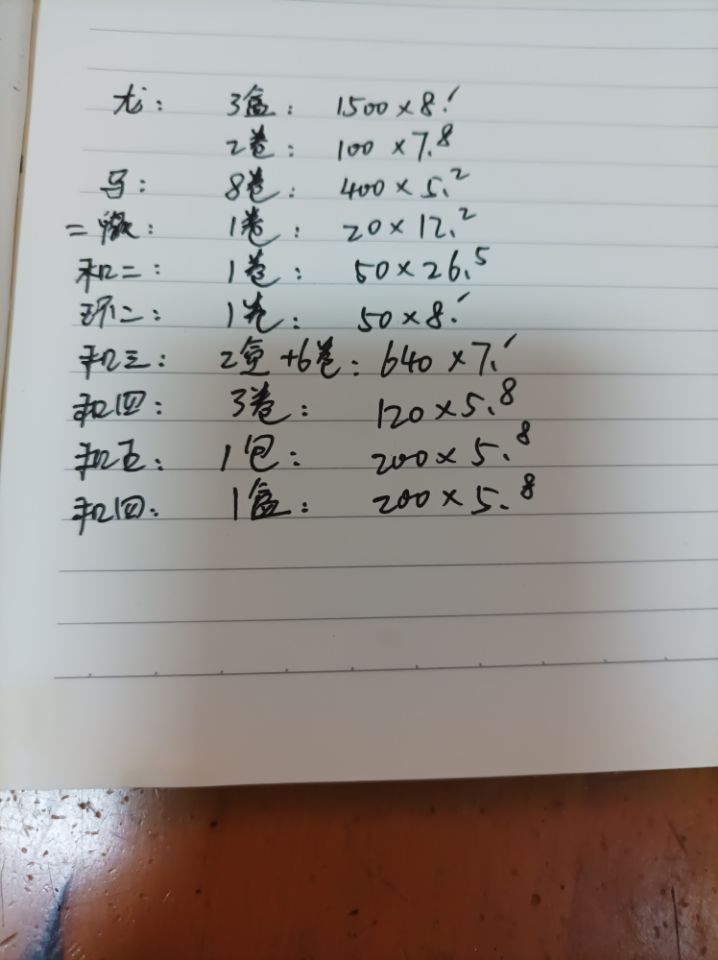 龙： 3盒： 1500×8.′
2卷： 100×7.8
马： 8卷： 400×5.2
二徽： 1卷： 20×12.2
和二： 1卷： 50×26.5
环二： 1卷： 50×8.′
和三： 2盒+6卷： 640×7.′
和四： 3卷： 120×5.8
和五： 1包： 200×5.8
和四： 1盒： 200×5.8